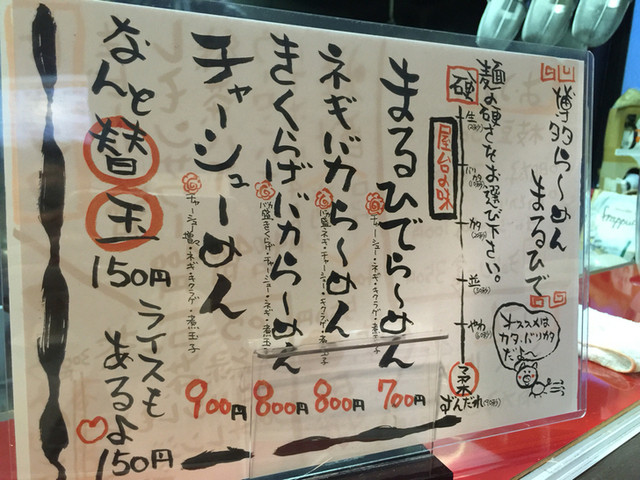 博多ら〜めん
まるひで
麺の硬さをお選び下さい。
硬
生
バリ
カタ
並
やわ
柔
ずんだれ
オススメは
カタ、バリカタ
だよ〜
屋台の味
まるひでら〜めん
チャーシュー・ネギ・キクラゲ・煮玉子
700円
ネギバカら〜めん
800円
きくらげバカら〜めん
800円
チャーシューめん
900円
なんと替玉
150円
ライスも
あるよ
150円